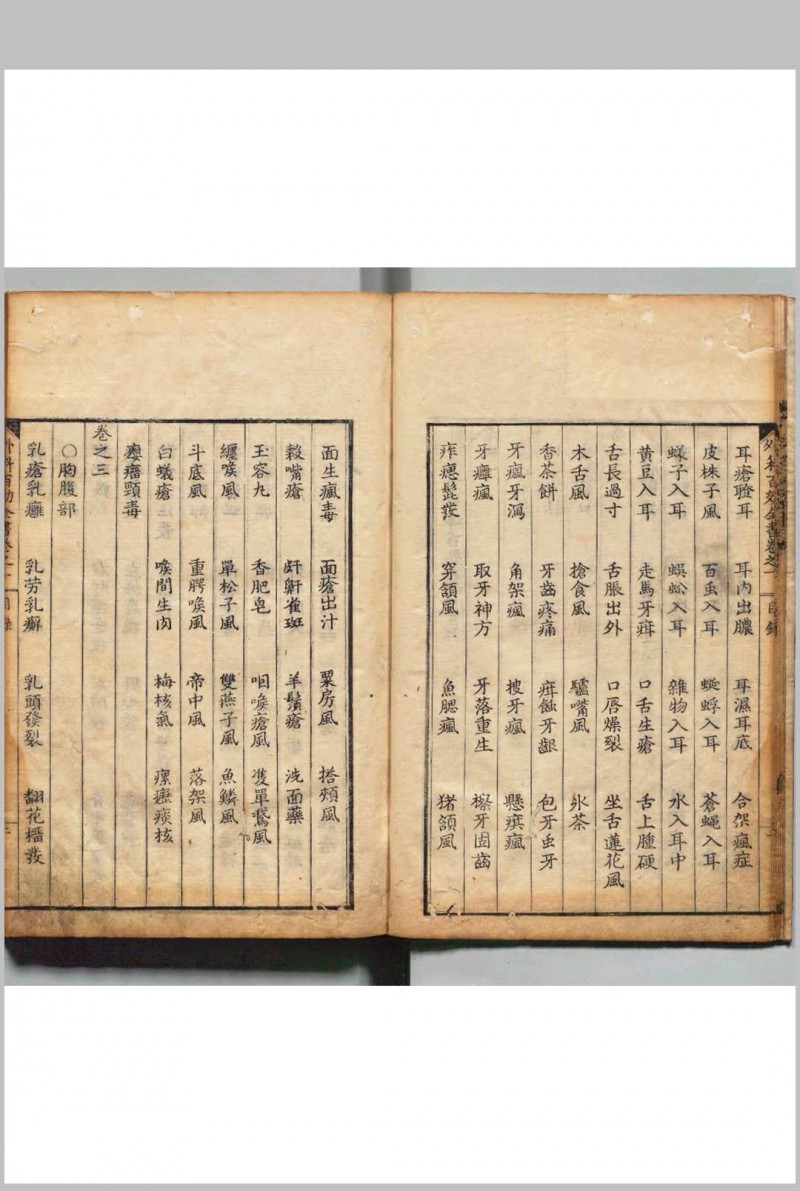 耳瘡聤耳 耳內出膿 耳濕耳底 合架瘋症
皮蛛子風 百虫入耳 蜒蚰入耳 蒼蝇入耳
蟻子入耳 蜈蚣入耳 雜物入耳 水入耳中
黃豆入耳 走馬牙疳 口舌生瘡 舌上腫硬
舌長過寸 舌脹出外 口唇燥裂 坐舌蓮花風
木舌風 搶食風 驢嘴風 氷茶
香茶餅 牙齒疼痛 疳蝕牙齦 包牙虫牙
牙瘋牙漏 角架瘋 搜牙瘋 懸瘼瘋
牙癰瘋 取牙神方 牙落重生 擦牙固齒
痄瘜髭發 穿頷風 魚腮瘋 猪頷風
面生瘋毒 面瘡出汁 粟房風 搭頰風
穀嘴瘡 皯䵟雀斑 羊鬚瘡 洗面藥
玉容丸 香肥皂 咽喉瘡風 雙單鵞風
纏喉風 單松子風 雙燕子風 魚鱗風
斗底風 重腭喉風 帝中風 落架風
白蟻瘡 喉間生肉 梅核氣 瘰癧痰核
癭瘤頸毒
卷之三
○胸腹部
乳瘡乳癰 乳劳乳癬 乳頭發裂 翻花榴發